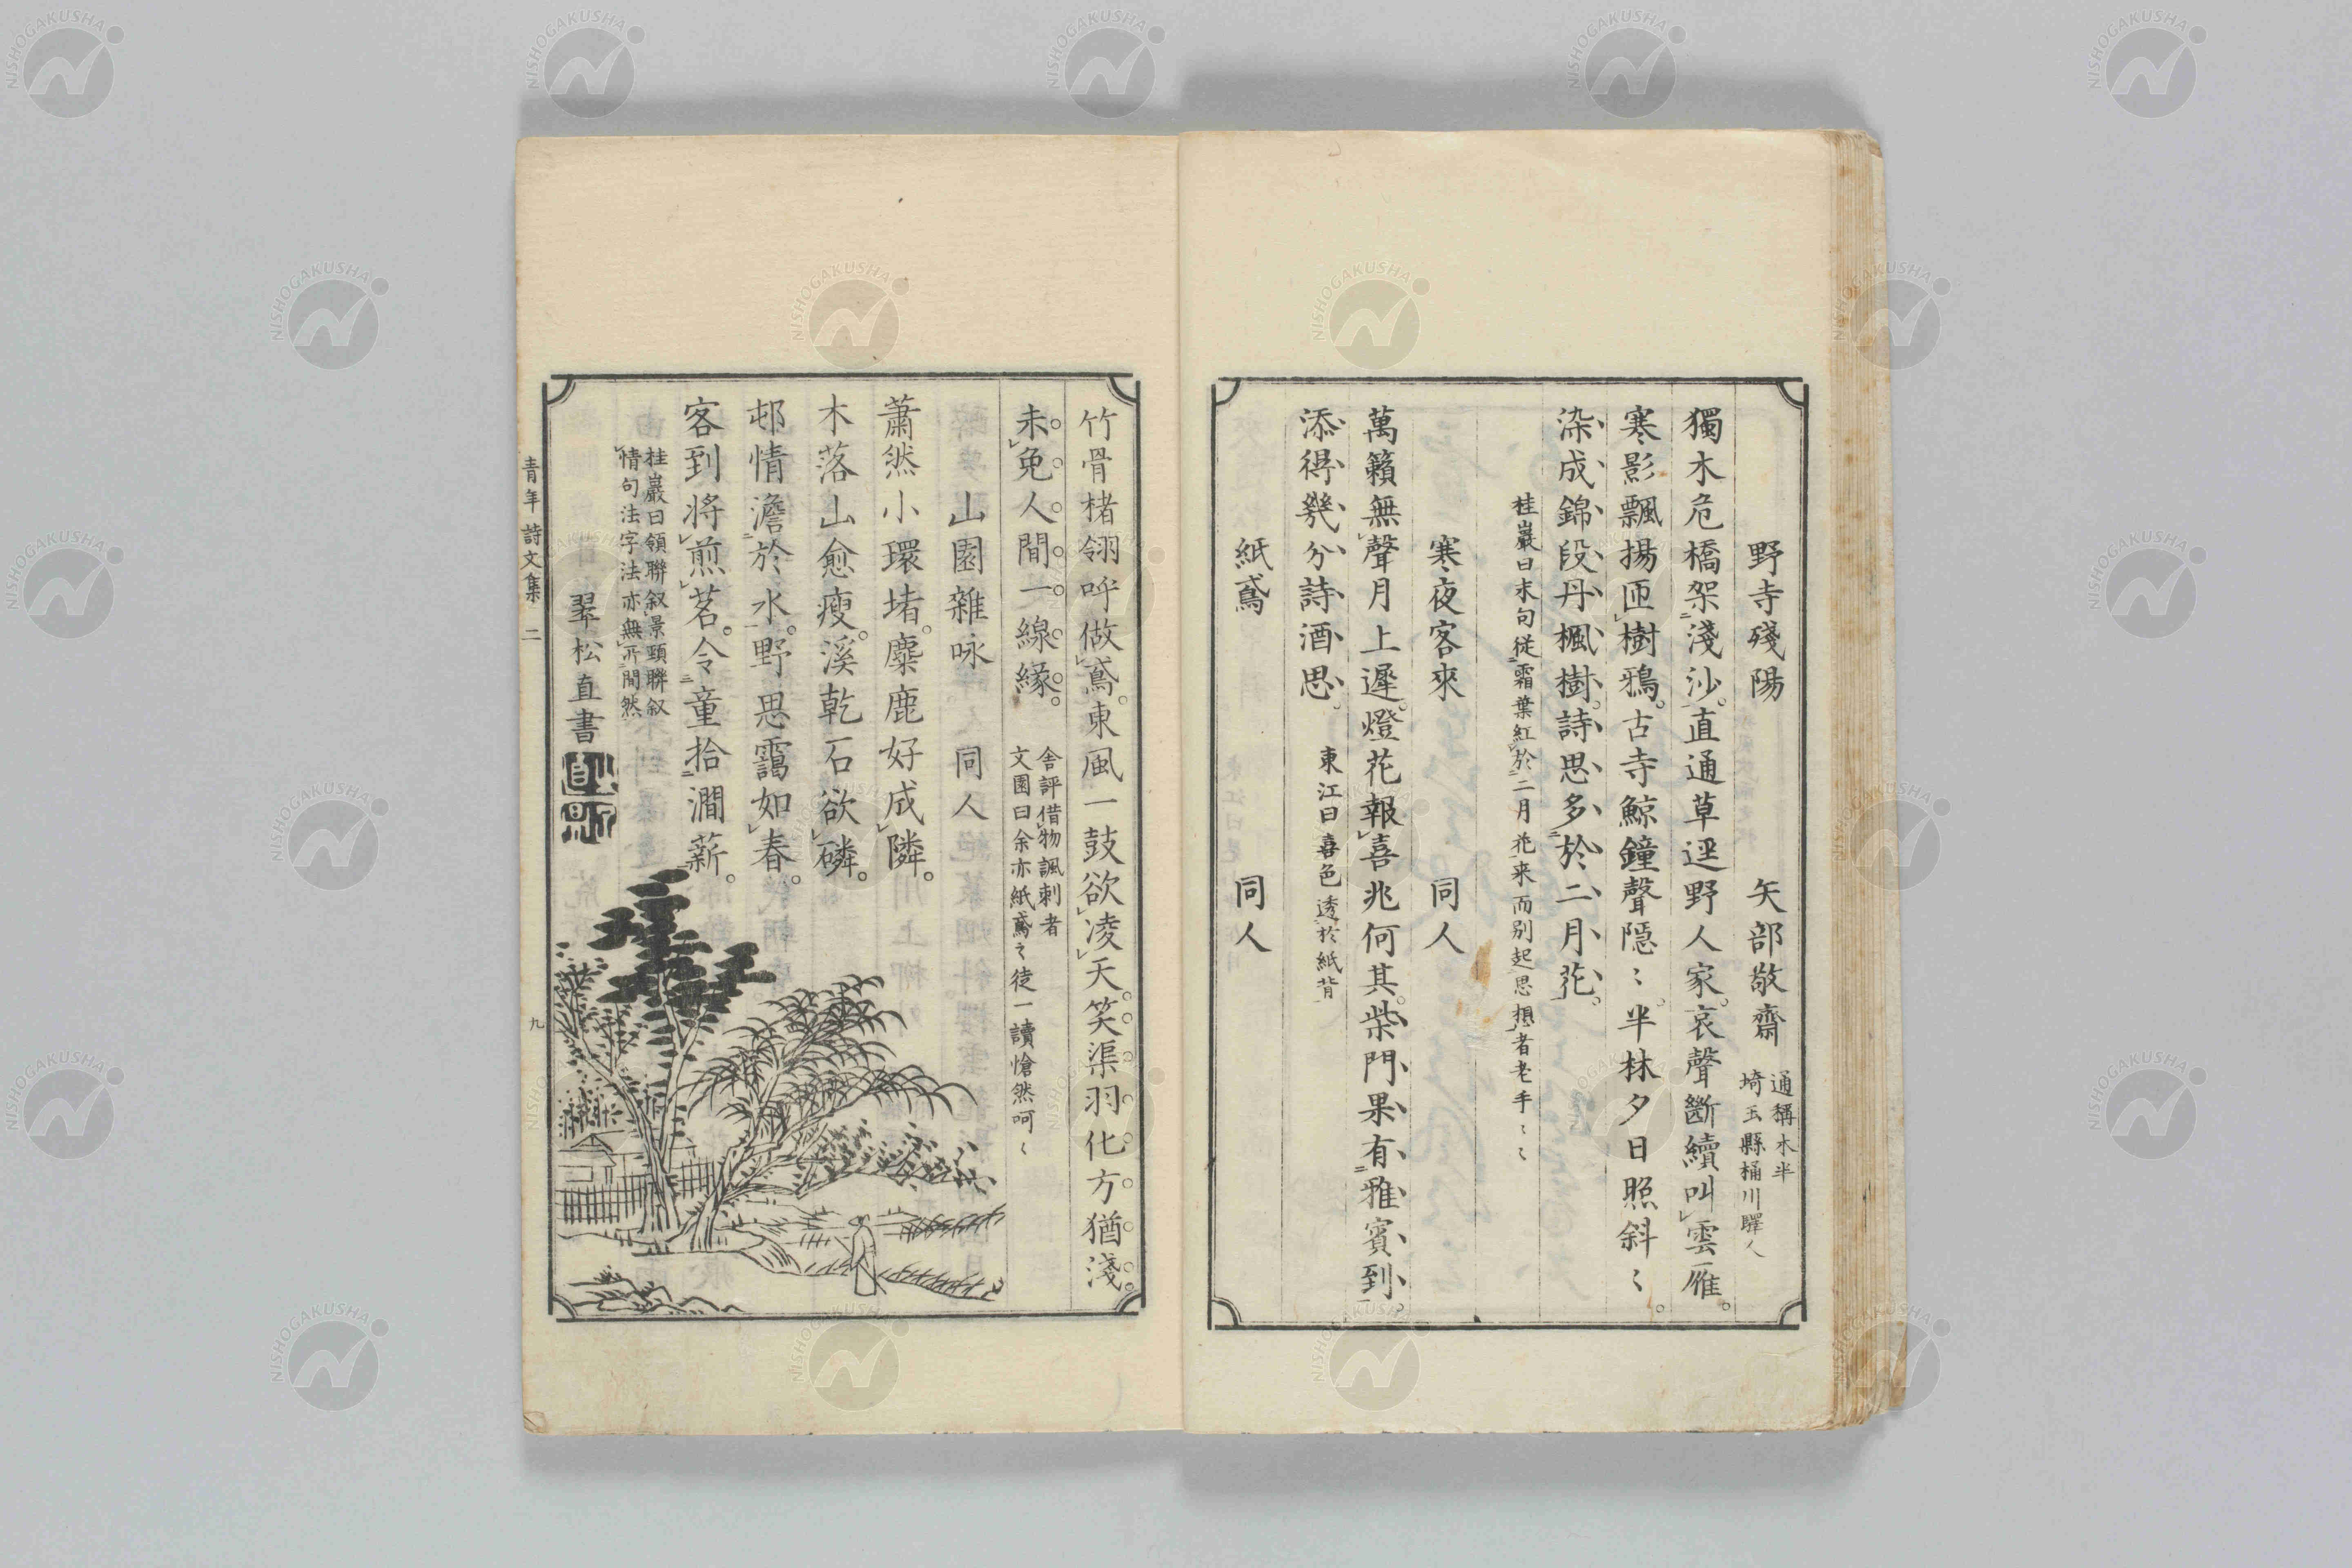 野寺殘陽　矢部敬齋 通稱木半
埼玉縣桶川驛人
獨木危橋架淺沙。直通草逕野人家。哀聲斷續叫雲雁。
寒影飄揚匝樹鴉。古寺鯨鐘聲隱〻。半林夕日照斜〻。
染成錦段丹楓樹。詩思多於二月花。
桂巖曰末句從霜葉紅於二月花来而別起思想者老手〻〻
寒夜客來　同人
萬籟無聲月上遲。燈花報喜兆何其。柴門果有雅賓到。
添得幾分詩酒思。
東江曰喜色透於紙背
紙鳶　同人
竹骨楮翎呼做鳶。東風一鼓欲凌天。笑渠羽化方猶淺。
未免人間一線緣。
舎評借物諷刺者
文園曰余亦紙鳶之徒一讀愴然呵〻
山園雜咏　同人
蕭然小環堵。麋鹿好成隣。
木落山愈瘦。溪乾石欲磷。
邨情澹於水。野思靄如春。
客到將煎茗。令童拾澗薪。
桂巖曰領聯叙景頸聯叙
情句法字法亦無所間然
翠松直書
青年詩文集 二
九
NISHOGAKUSHA